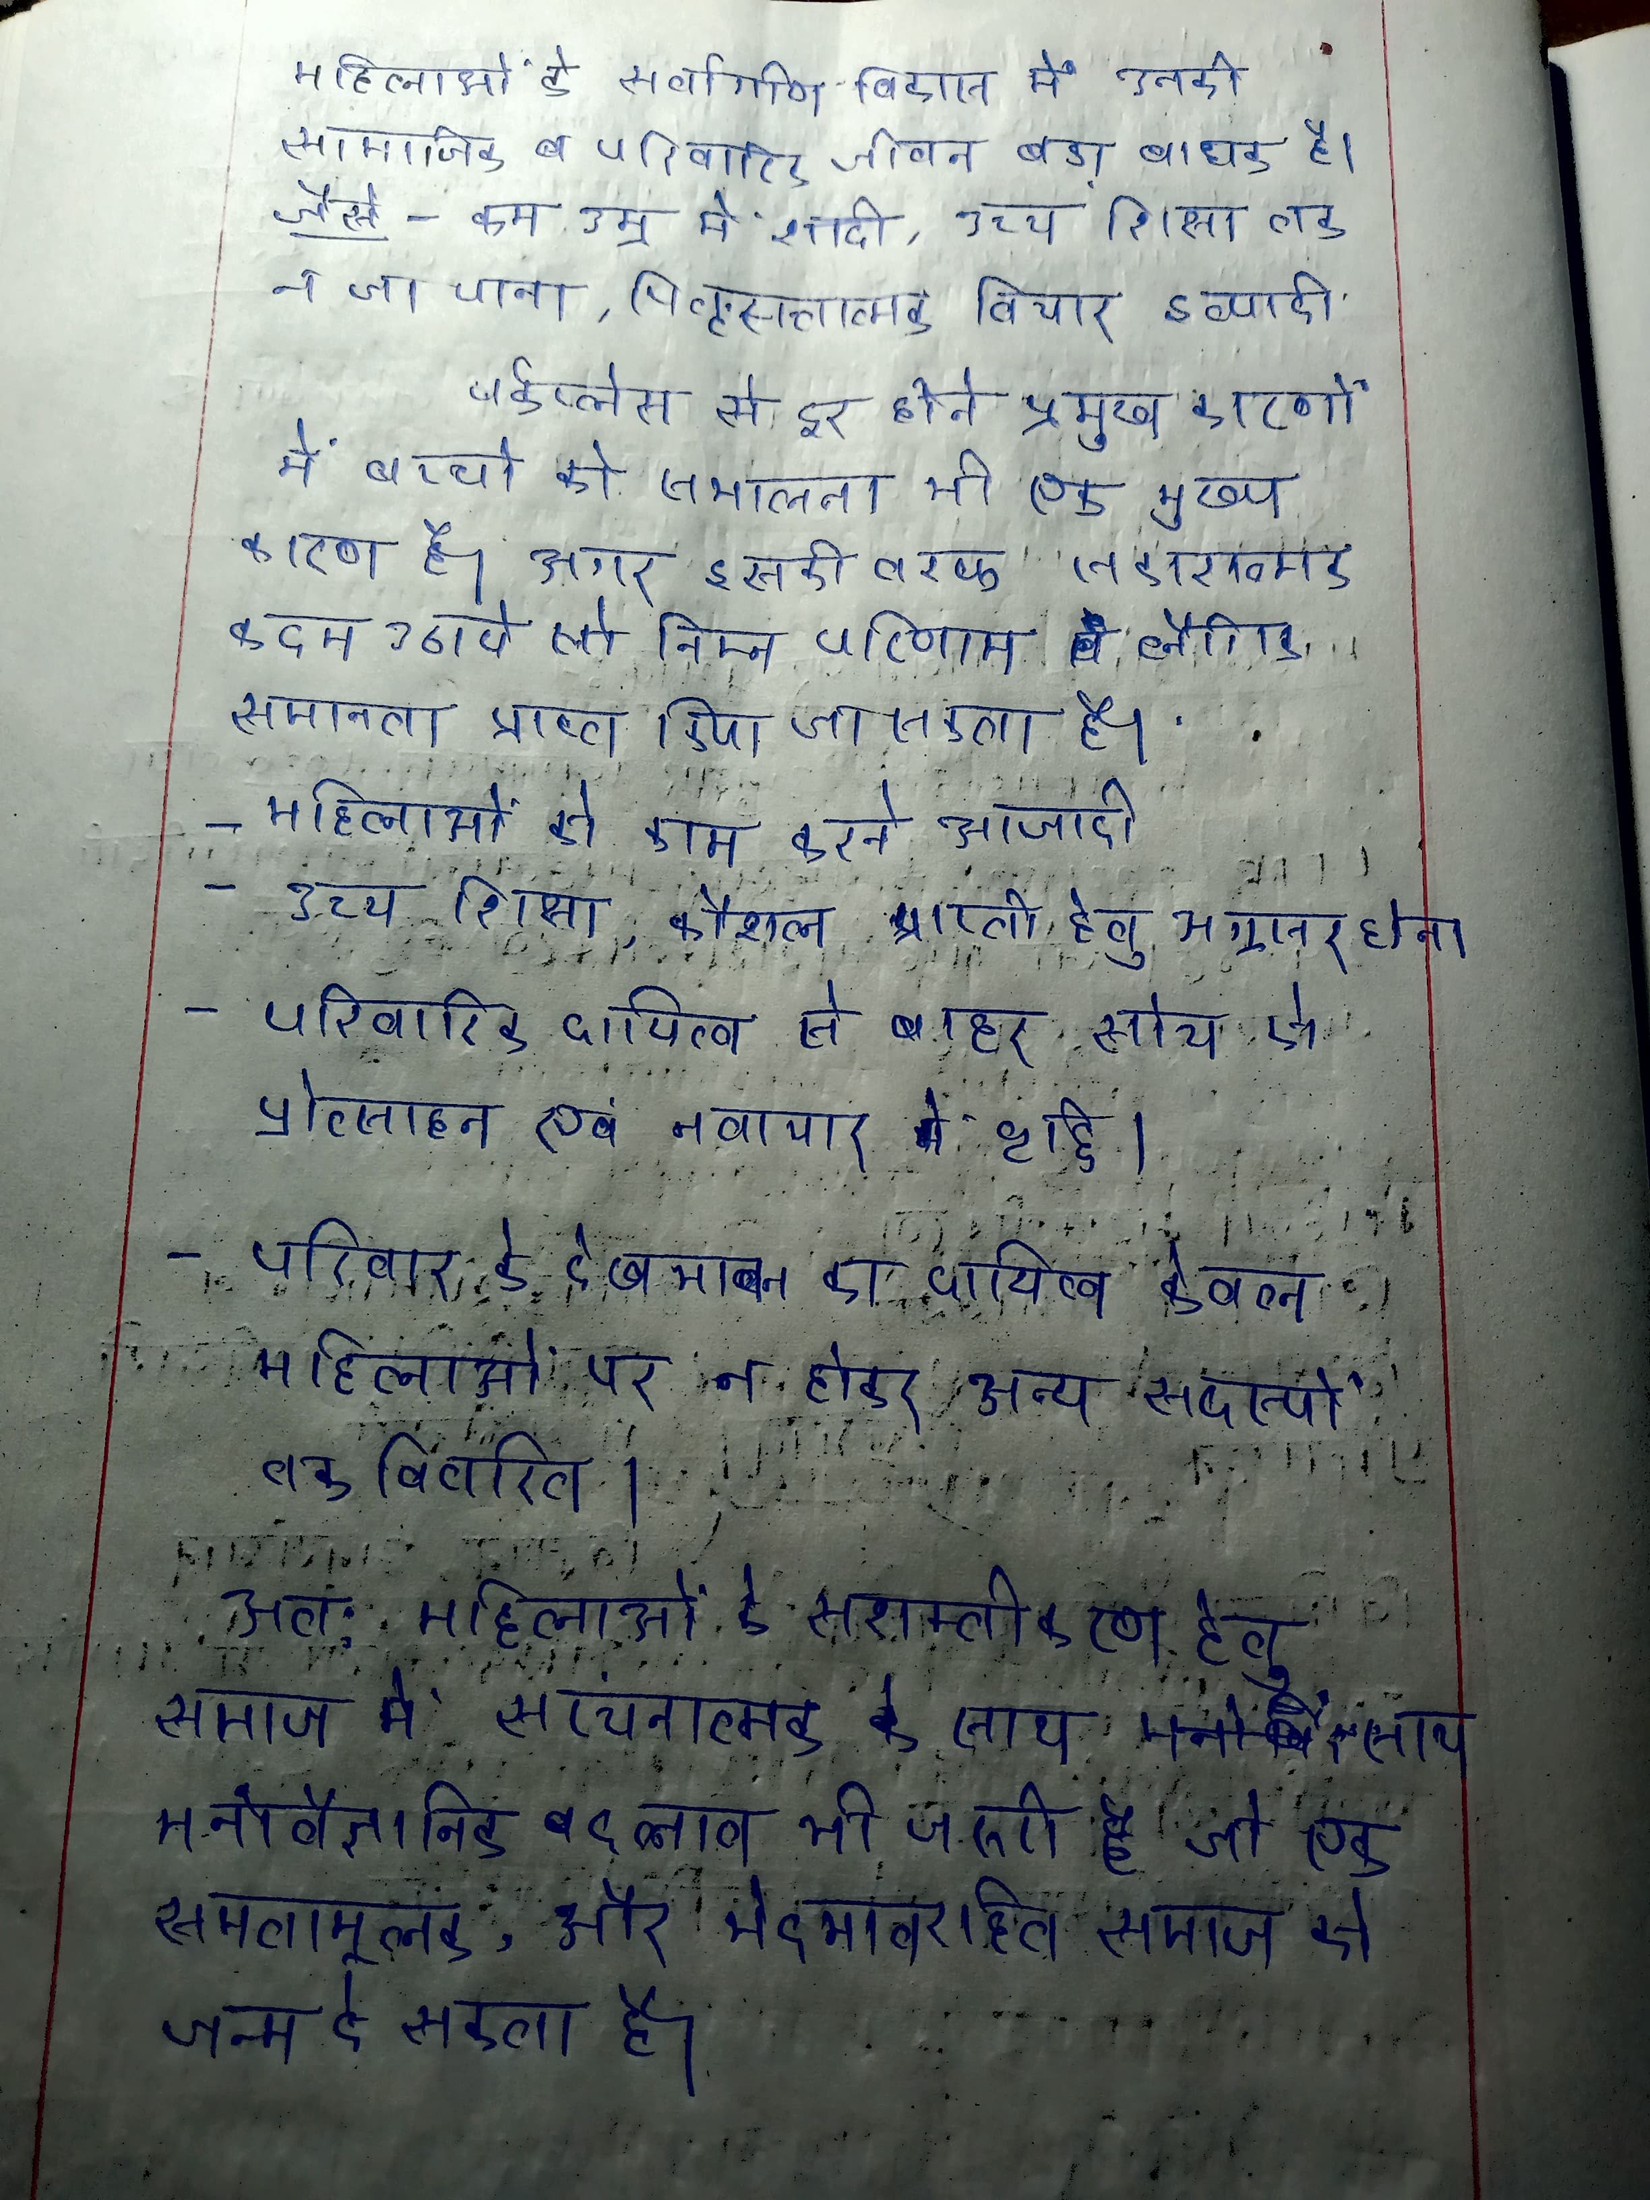 महिलाओं के सर्वांगीण विकास में उनकी
सामाजिक व परिवारिक जीवन बड़ा बाधक है।
जैसे - कम उम्र में शादी, उच्च शिक्षा तक
न जा पाना, पितृसत्तात्मक विचार इत्यादी
वर्कप्लेस से दूर होने प्रमुख कारणों
में बच्चो को सभालना भी एक मुख्य
कारण है। अगर इसकी तरफ सकारात्मक
कदम उठाये तो निम्न परिणाम से लैंगिक
समानता प्राप्त किया जा सकता है।
- महिलाओं को काम करने आजादी
- उच्च शिक्षा, कौशल प्राप्ती हेतु अग्रसर होना
- परिवारिक दायित्व से बाहर सोच को
प्रोत्साहन एवं नवाचार में वृद्धि।
- परिवार के देखभाल का दायित्व केवल
महिलाओं पर न होकर अन्य सदस्यों
तक वितरित।
अतः महिलाओं के सशक्तीकरण हेतु
समाज में संरचनात्मक के साथ साथ
मनोवैज्ञानिक बदलाव भी जरूरी है जो एक
समतामूलक, और भेदभावरहित समाज को
जन्म दे सकता है।